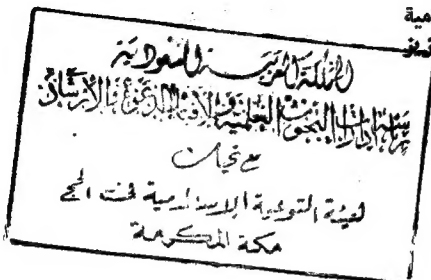 مية
المملكة العربية السعودية
رئاسة إدارات البحوث العلمية والإفتاء والدعوة والإرشاد
مع تحيات
لهيئة التوعية الإسلامية في الحج
مكة المكرمة